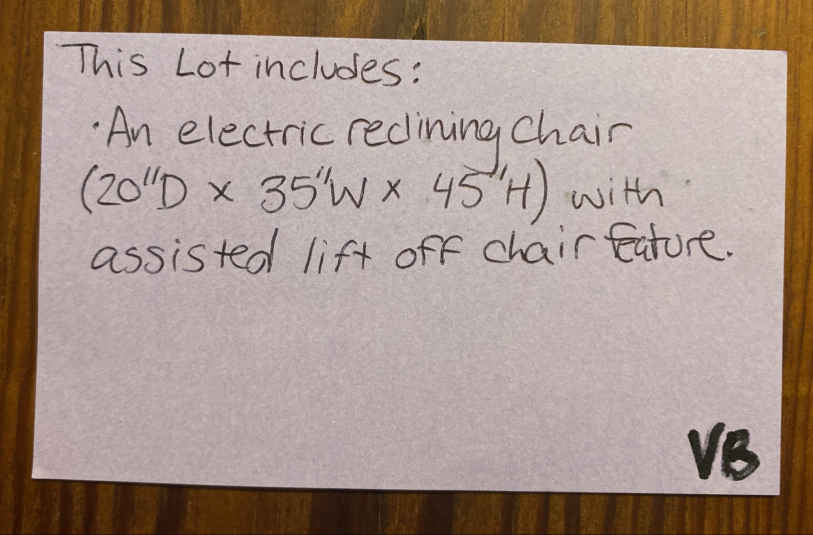 This Lot includes:
·An electric reclining chair
(20"D x 35"W x 45"H) with
assisted lift off chair feature.
VB